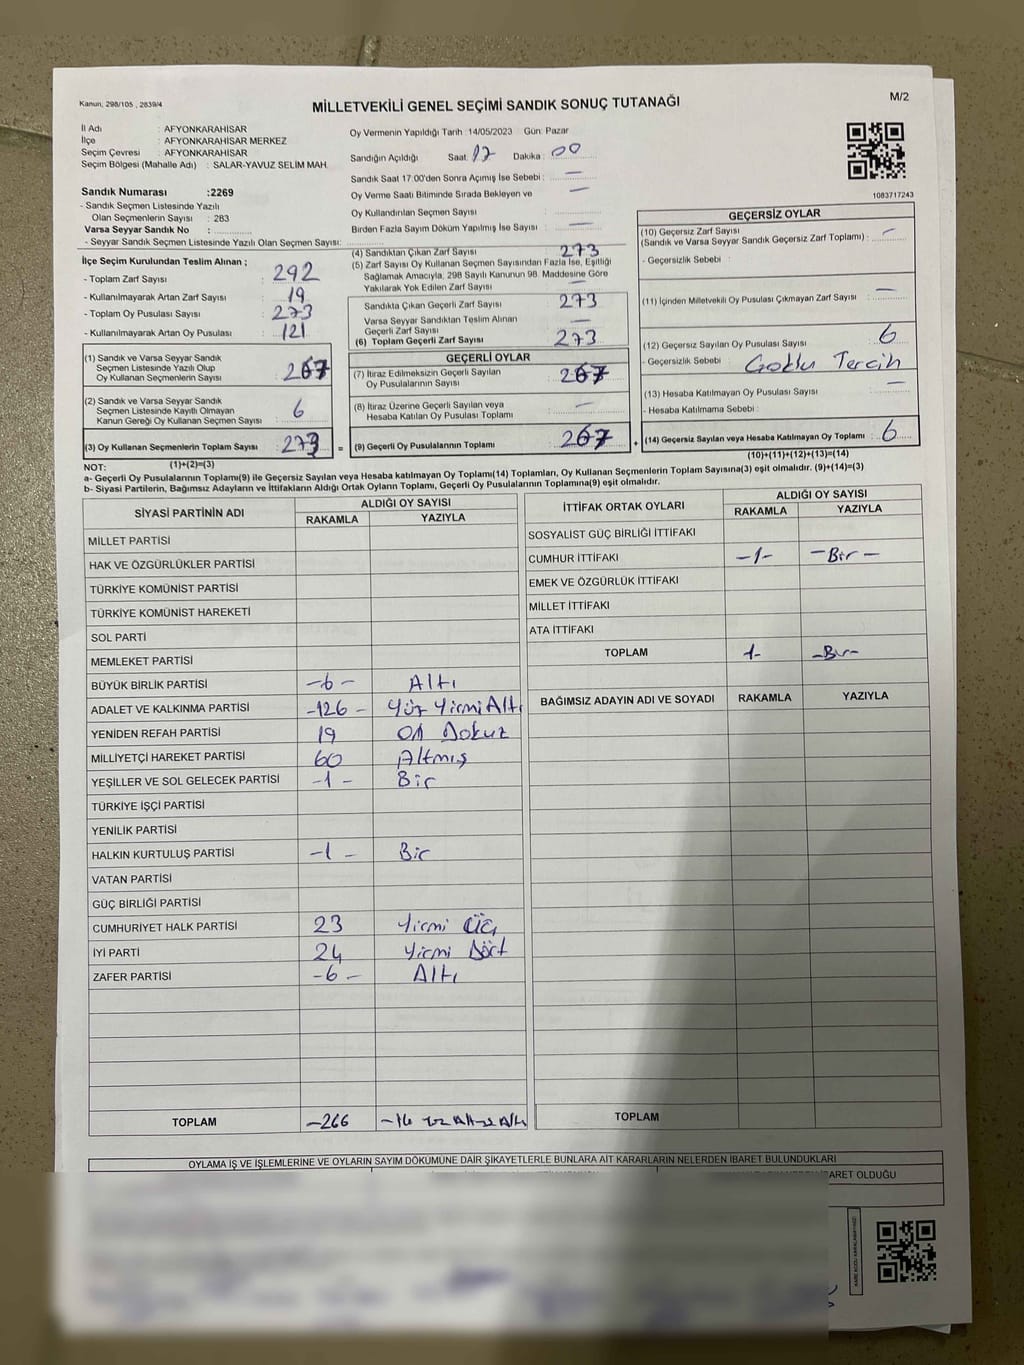 Kanun, 298/105 , 2839/4
MİLLETVEKİLİ GENEL SEÇİMİ SANDIK SONUÇ TUTANAĞI
M/2
İl Adı : AFYONKARAHİSAR
İlçe : AFYONKARAHİSAR MERKEZ
Seçim Çevresi : AFYONKARAHİSAR
Seçim Bölgesi (Mahalle Adı) : SALAR-YAVUZ SELİM MAH.
Oy Vermenin Yapıldığı Tarih :14/05/2023 Gün: Pazar
Sandığın Açıldığı Saat: 17 Dakika : 00
Sandık Saat 17:00'den Sonra Açımış İse Sebebi : —
Oy Verme Saati Bitiminde Sırada Bekleyen ve —
Oy Kullandırılan Seçmen Sayısı :
Birden Fazla Sayım Döküm Yapılmış İse Sayısı : —
1083717243
Sandık Numarası :2269
- Sandık Seçmen Listesinde Yazılı
Olan Seçmenlerin Sayısı : 283
Varsa Seyyar Sandık No :
- Seyyar Sandık Seçmen Listesinde Yazılı Olan Seçmen Sayısı:
İlçe Seçim Kurulundan Teslim Alınan ;
- Toplam Zarf Sayısı : 292
- Kullanılmayarak Artan Zarf Sayısı : 19
- Toplam Oy Pusulası Sayısı : 273
- Kullanılmayarak Artan Oy Pusulası : 121
(1) Sandık ve Varsa Seyyar Sandık
Seçmen Listesinde Yazılı Olup
Oy Kullanan Seçmenlerin Sayısı : 267
(2) Sandık ve Varsa Seyyar Sandık
Seçmen Listesinde Kayıtlı Olmayan
Kanun Gereği Oy Kullanan Seçmen Sayısı : 6
(3) Oy Kullanan Seçmenlerin Toplam Sayısı : 273
(4) Sandıktan Çıkan Zarf Sayısı : 273
(5) Zarf Sayısı Oy Kullanan Seçmen Sayısından Fazla İse, Eşitliği
Sağlamak Amacıyla, 298 Sayılı Kanunun 98. Maddesine Göre
Yakılarak Yok Edilen Zarf Sayısı : —
Sandıkta Çıkan Geçerli Zarf Sayısı : 273
Varsa Seyyar Sandıktan Teslim Alınan
Geçerli Zarf Sayısı : —
(6) Toplam Geçerli Zarf Sayısı : 273
GEÇERLİ OYLAR
(7) İtiraz Edilmeksizin Geçerli Sayılan
Oy Pusulalarının Sayısı : 267
(8) İtiraz Üzerine Geçerli Sayılan veya
Hesaba Katılan Oy Pusulası Toplamı : —
= (9) Geçerli Oy Pusulalarının Toplamı : 267
GEÇERSİZ OYLAR
(10) Geçersiz Zarf Sayısı
(Sandık ve Varsa Seyyar Sandık Geçersiz Zarf Toplamı) : —
- Geçersizlik Sebebi :
(11) İçinden Milletvekili Oy Pusulası Çıkmayan Zarf Sayısı : —
(12) Geçersiz Sayılan Oy Pusulası Sayısı : 6
- Geçersizlik Sebebi : Çoklu Tercih
(13) Hesaba Katılmayan Oy Pusulası Sayısı : —
- Hesaba Katılmama Sebebi :
+ (14) Geçersiz Sayılan veya Hesaba Katılmayan Oy Toplamı : 6
NOT: (1)+(2)=(3)
(10)+(11)+(12)+(13)=(14)
a- Geçerli Oy Pusulalarının Toplamı(9) ile Geçersiz Sayılan veya Hesaba katılmayan Oy Toplamı(14) Toplamları, Oy Kullanan Seçmenlerin Toplam Sayısına(3) eşit olmalıdır. (9)+(14)=(3)
b- Siyasi Partilerin, Bağımsız Adayların ve İttifakların Aldığı Ortak Oyların Toplamı, Geçerli Oy Pusulalarının Toplamına(9) eşit olmalıdır.
SİYASİ PARTİNİN ADI ALDIĞI OY SAYISI
RAKAMLA YAZIYLA
MİLLET PARTİSİ
HAK VE ÖZGÜRLÜKLER PARTİSİ
TÜRKİYE KOMÜNİST PARTİSİ
TÜRKİYE KOMÜNİST HAREKETİ
SOL PARTİ
MEMLEKET PARTİSİ
BÜYÜK BİRLİK PARTİSİ -6- Altı
ADALET VE KALKINMA PARTİSİ -126- Yüz Yirmi Altı
YENİDEN REFAH PARTİSİ 19 On Dokuz
MİLLİYETÇİ HAREKET PARTİSİ 60 Altmış
YEŞİLLER VE SOL GELECEK PARTİSİ -1- Bir
TÜRKİYE İŞÇİ PARTİSİ
YENİLİK PARTİSİ
HALKIN KURTULUŞ PARTİSİ -1- Bir
VATAN PARTİSİ
GÜÇ BİRLİĞİ PARTİSİ
CUMHURİYET HALK PARTİSİ 23 Yirmi Üç
İYİ PARTİ 24 Yirmi Dört
ZAFER PARTİSİ -6- Altı
TOPLAM -266
İTTİFAK ORTAK OYLARI ALDIĞI OY SAYISI
RAKAMLA YAZIYLA
SOSYALİST GÜÇ BİRLİĞİ İTTİFAKI
CUMHUR İTTİFAKI -1- -Bir-
EMEK VE ÖZGÜRLÜK İTTİFAKI
MİLLET İTTİFAKI
ATA İTTİFAKI
TOPLAM 1- -Bir-
BAĞIMSIZ ADAYIN ADI VE SOYADI RAKAMLA YAZIYLA
TOPLAM
OYLAMA İŞ VE İŞLEMLERİNE VE OYLARIN SAYIM DÖKÜMÜNE DAİR ŞİKAYETLERLE BUNLARA AİT KARARLARIN NELERDEN İBARET BULUNDUKLARI
İBARET OLDUĞU